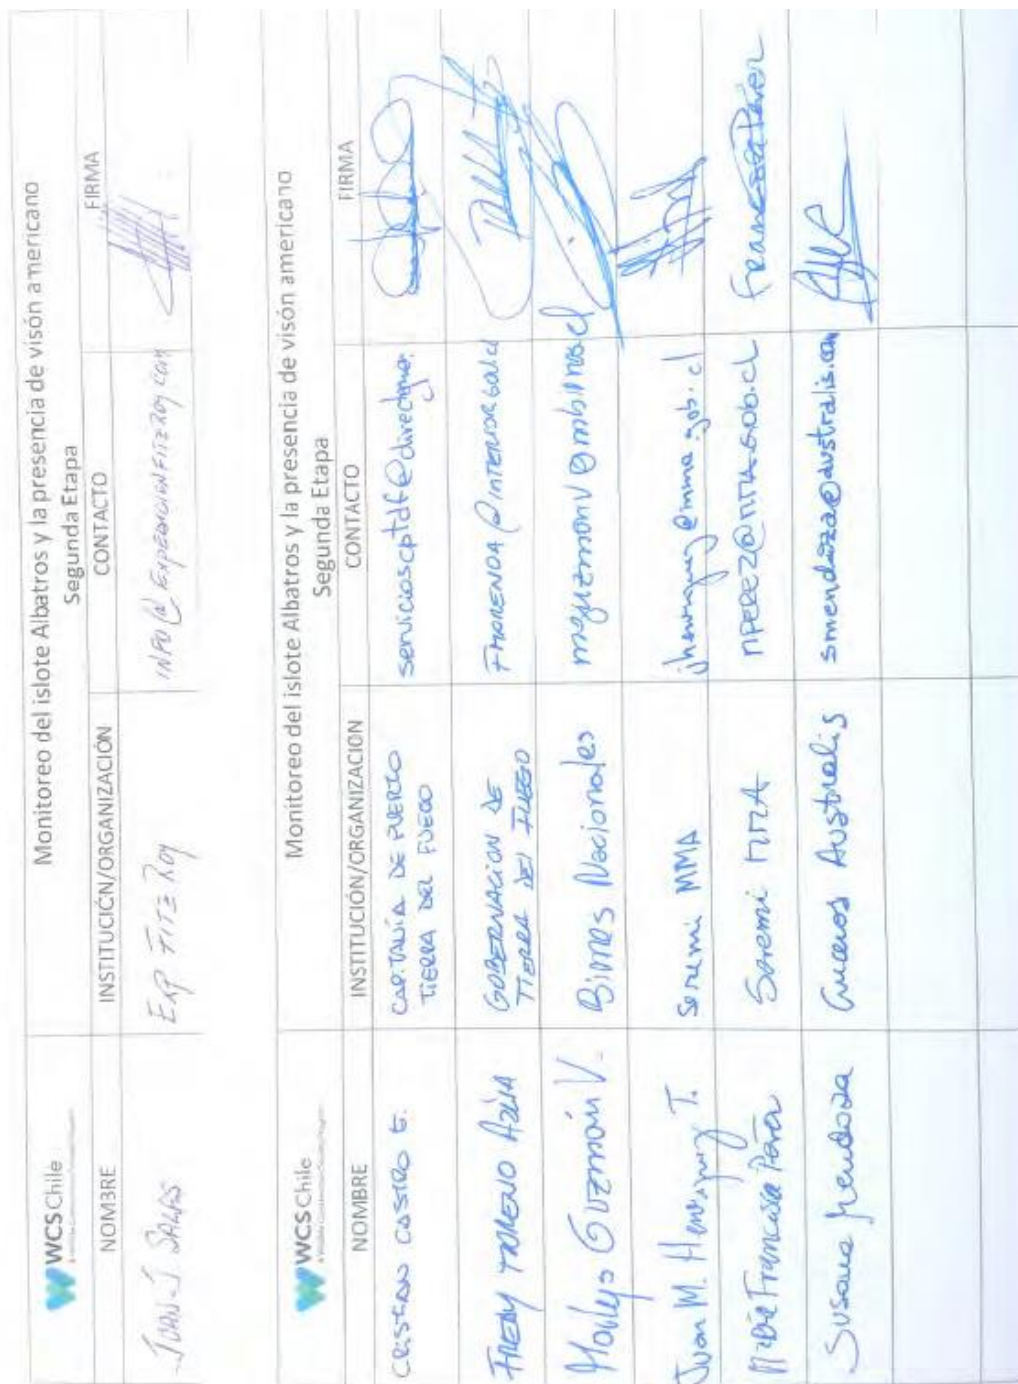 WCS Chile
Monitoreo del islote Albatros y la presencia de visón americano
Segunda Etapa
NOMBRE INSTITUCIÓN/ORGANIZACIÓN CONTACTO FIRMA
JUAN-J SALAS EXP FITZ ROY INFO@EXPEDICIONFITZROY.COM
WCS Chile
Monitoreo del islote Albatros y la presencia de visón americano
Segunda Etapa
NOMBRE INSTITUCIÓN/ORGANIZACION CONTACTO FIRMA
CRISTIAN CASTRO E. CAPITANÍA DE PUERTO servicioscptdf@directemar.
TIERRA DEL FUEGO
FREDY MORENO GOBERNACION DE FMORENOA@INTERIOR.GOB.CL
TIERRA DEL FUEGO
Guzmán V. Bienes Nacionales
Juan M. Henriquez T. Seremi MMA jhenriquez@mma.gob.cl
María Francisca Pérez Seremi MMA MPEREZ@MMA.GOB.CL Francisca Pérez
Susana Mendoza Cruceros Australis smendoza@australis.com